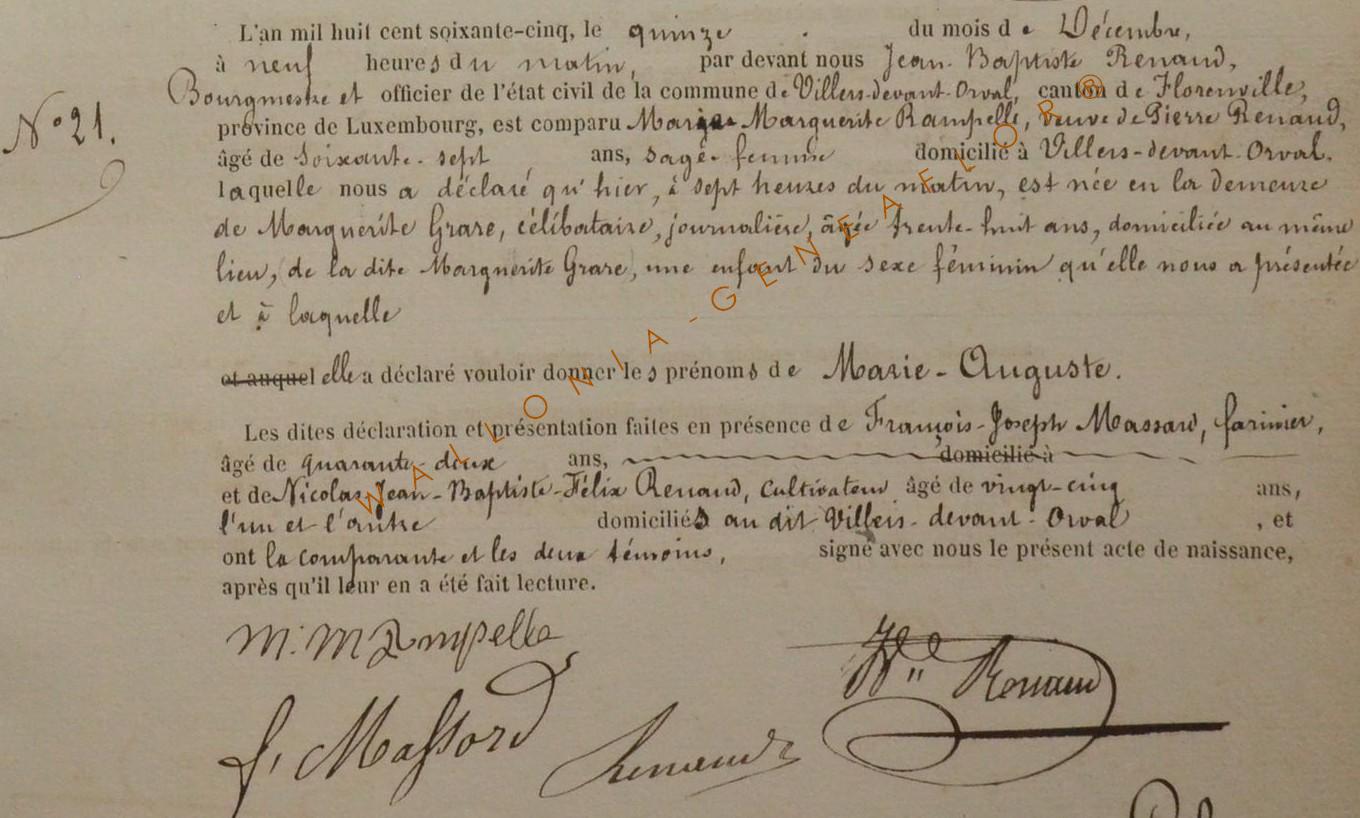 L'an mil huit cent soixante-cinq, le quinze du mois de Décembre,
à neuf heures du matin, par devant nous Jean-Baptiste Renaud,
Bourgmestre et officier de l'état civil de la commune de Villers-devant-Orval, canton de Florenville,
N° 21.
province de Luxembourg, est comparu Marguerite Rampelle, veuve de Pierre Renaud,
âgé de soixante-sept ans, sage-femme domicilié à Villers-devant-Orval.
laquelle nous a déclaré qu'hier, à sept heures du matin, est née en la demeure
de Marguerite Grare, célibataire, journalière, âgée trente-huit ans, domiciliée au même
lieu, de la dite Marguerite Grare, une enfant du sexe féminin qu'elle nous a présentée
et à laquelle
et auquel elle a déclaré vouloir donner les prénoms de Marie-Auguste.
Les dites déclaration et présentation faites en présence de François-Joseph Massard, farinier,
âgé de quarante-deux ans, domicilié à
et de Nicolas-Jean-Baptiste-Félix Renaud, cultivateur âgé de vingt-cinq ans,
l'un et l'autre domiciliés au dit Villers-devant-Orval, et
ont la comparante et les deux témoins, signé avec nous le présent acte de naissance,
après qu'il leur en a été fait lecture.
M. M Rampelle
Renaud
f. Massard
Renaud
WALLONIA-GENEAFLOR®